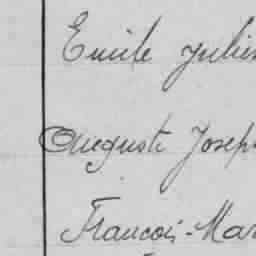 Emile Julien
Auguste Joseph
François-Mar